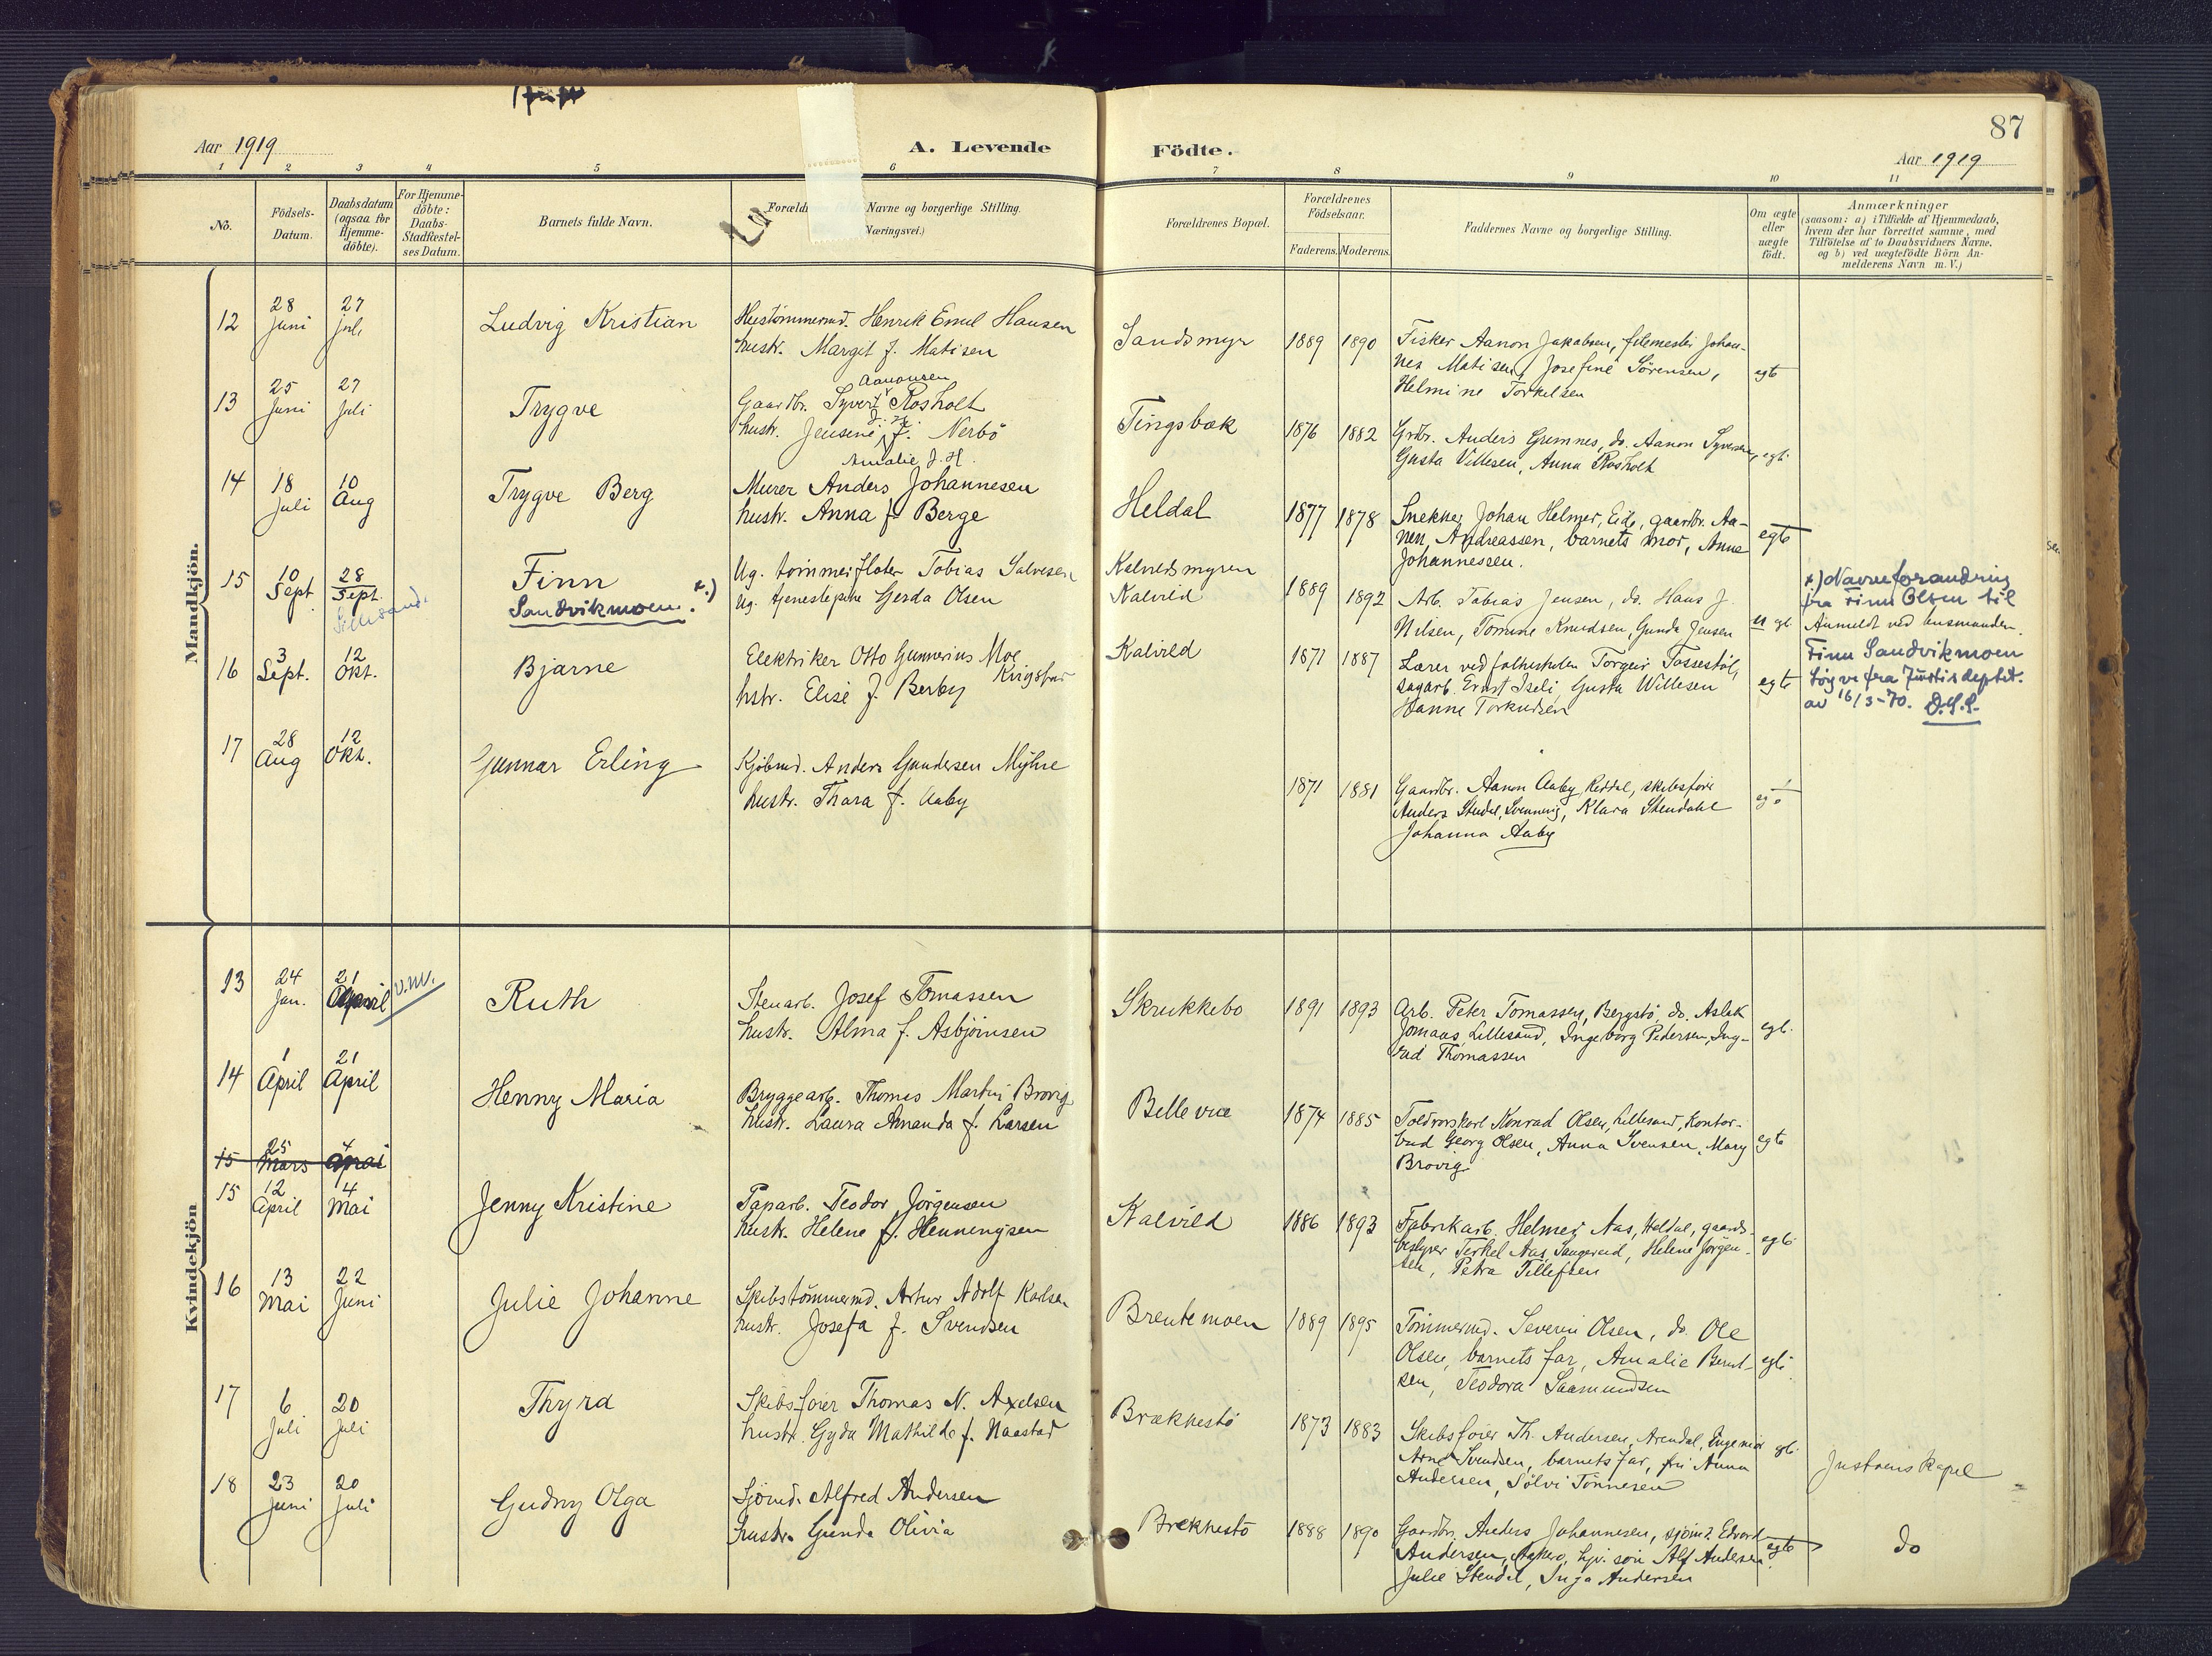 87
Aar 1919
A. Levende
Födte.
Aar 1919
1 2 3 4 5 6 7 8 9 10 11
No.
Födsels-
Datum.
Daabsdatum
(ogsaa for
Hjemme-
döbte).
For Hjemme-
döbte:
Daabs-
Stadfæstel-
ses Datum.
Barnets fulde Navn.
Forældr Navne og borgerlige Stilling.
Næringsvei.)
Forældrenes Bopæl.
Forældrenes
Födselsaar.
Faderens. Moderens.
Faddernes Navne og borgerlige Stilling.
Om ægte
eller
uægte
födt.
Anmærkninger
(saasom: a) i Tilfælde af Hjemmedaab,
hvem der har forrettet samme, med
Tilföielse af to Daabsvidners Navne.
og b) ved uægtefödte Börn An-
melderens Navn m. V.)
Mandkjön.
12
28
Juni
27
juli
Ludvig Kristian
Henrik Emil Hansen
hustr. Margit f. Matisen
Sandsmyr
1889 1890
Fisker Aanon Jakobsen, filemester Johan-
nes Matisen, Josefine Sørensen,
Helmine Torkelsen
egte
13
25
Juni
27
Juli
Trygve
Aanonsen
Gaardbr. Syvert Rosholt
hustr. Jensine f. Nerbö
Tingsbæk
1876 1882
Grdbr. Anders Grimnes, do. Aanon Syversen,
Gusta Villesen, Anna Rosholt
egt.
14
18
Juli
10
Aug
Trygve Berg
Amalie J. H.
Murer Anders Johannesen
hustr. Anna f. Berge
Heldal
1877 1878
Snekker Johan Helmer, Eide, gaardbr. Aa-
nen Andreassen, barnets mor, Anna
Johannessen.
egte
15
10
Sept
28
Sept.
Lillesand.
Finn
Sandvikmoen. x.)
Ug. tømmerfløter Tobias Salvesen
Ug. tjenestepike Gerda Olsen
Kalvildsmyren
Kalvild
1889 1892
Arb. Tobias Jensen, do. Hans J.
Nilsen, Tomine Knudsen, Gunda Jensen
u gt.
x) Navneforandring
fra Finn Olsen til
Anmeldt ved lensmanden.
Finn Sandvikmoen
fra Justisdeptet.
av 16/3-70. D.S.S.
16
3
Sept.
12
Okt.
Bjarne
Elektriker Otto Gunnerius Moe
hstr. Elise f. Berby
Kalvild
1871 1887
Lærer ved folkeskolen Torgeir Tossestöl,
sagarb. Ernst Iseli, Gusta Willesen
Hanne Torkildsen
egte
17
28
Aug
12
Okt.
Gunnar Erling
Kjöbmd. Anders Gundersen Myhre
hustr. Thara f. Aaby
1871 1881
Gaardbr. Aanon Aaby, Reddal, skibsförer
Anders Stendal, Svennevig, Klara Stendahl
Johanna Aaby
Kvindekjön
13
24
Jan.
21
April
v.m.
Ruth
Stenarb. Josef Tomassen
hustr. Alma f. Asbjörnsen
Skrukkebo
1891 1893
Arb. Peter Tomassen, Bergstö, do. Aslak
Jomaas, Lillesand, Ingeborg Pedersen, Ing-
rid Thomassen
egt.
14
1
April
21
April
Henny Maria
Bryggearb. Thomas Martin Brovig
hustr. Laura Amanda f. Larsen
Bellevue
1874 1885
Toldrorskarl Konrad Olsen, Lillesand, Kontor-
bud Georg Olsen, Anna Svensen, Mary
Brovig
egte
15
25
Mars
4
15
12
April
4
Mai
Jenny Kristine
Paparb. Teodor Jörgensen
hustr. Helene f. Henningsen
Kalvild
1886 1893
Fabrikarb. Helmer Aas, Heldal, gaards-
bestyrer Terkel Aas, Saugerud, Helene Jörgen-
sen, Petra Tellefsen
egt.
16
13
Mai
22
Juni
Julie Johanne
Skibstömmermd. Artur Adolf Karlsen
hustr. Josefa f. Svendsen
Brentemoen
1889 1895
Tömmermd. Severin Olsen, do. Ole
Olsen, barnets far, Amalie Bernt-
sen, Teodora Saamundsen
egt.
17
6
Juli
20
Juli
Thyra
Skibsförer Thomas N. Axelsen
hustr. Gyda Mathilde f. Naastad
Brækkestö
1873 1883
Skibsförer Th. Andersen, Arendal, Ingeniör
Arne Svendsen, barnets far, fru Anna
Andersen, Sölvi Tönnesen
egt.
Justöens Kapel
18
23
Juni
20
Juli
Gudny Olga
Sjömd. Alfred Andersen
hustr. Gunda Olivia
Brekkestö
1888 1890
Gaardbr. Anders Johannesen, sjömd. Edvard
Andersen, Alf Andersen
Julie Stendal, Inga Andersen
egte
do